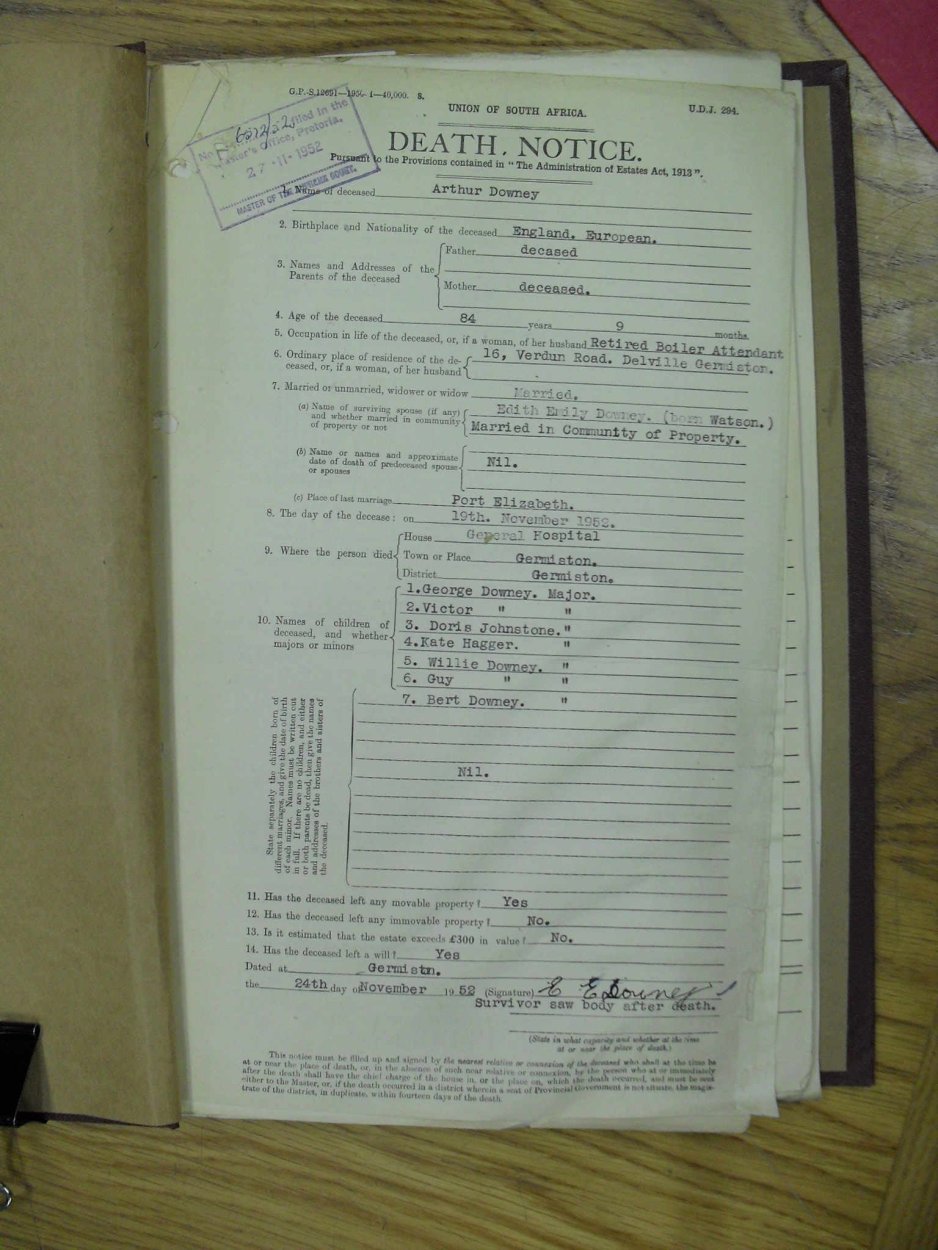 G.P.-S.12691—1950- 1—40,000. S.
U.D.J. 294.
UNION OF SOUTH AFRICA.
DEATH. NOTICE.
Pursuant to the Provisions contained in "The Administration of Estates Act, 1913".
No.
filed in the
Master's Office, Pretoria.
27-11-1952
MASTER OF THE SUPREME COURT.
1. Name of deceased Arthur Downey
2. Birthplace and Nationality of the deceased England. European.
3. Names and Addresses of the Parents of the deceased
Father decased
Mother deceased.
4. Age of the deceased 84 years 9 months.
5. Occupation in life of the deceased, or, if a woman, of her husband Retired Boiler Attendant
6. Ordinary place of residence of the de- 16, Verdun Road. Delville Germiston.
ceased, or, if a woman, of her husband
7. Married or unmarried, widower or widow Married.
(a) Name of surviving spouse (if any) Edith Emily Downey. (born Watson.)
and whether married in community Married in Community of Property.
of property or not
(b) Name or names and approximate
date of death of predeceased spouse Nil.
or spouses
(c) Place of last marriage Port Elizabeth.
8. The day of the decease: on 19th. November 1952.
9. Where the person died
House General Hospital
Town or Place Germiston.
District Germiston.
10. Names of children of
deceased, and whether
majors or minors
1.George Downey. Major.
2.Victor " "
3. Doris Johnstone."
4.Kate Hagger. "
5. Willie Downey. "
6. Guy " "
7. Bert Downey. "
State separately the children born of
different marriages, and give the date of birth
of each minor. Names must be written out
in full. If there are no children, and either
or both parents be dead, then give the names
and addresses of the brothers and sisters of
the deceased.
Nil.
11. Has the deceased left any movable property? Yes
12. Has the deceased left any immovable property? No.
13. Is it estimated that the estate exceeds £300 in value? No.
14. Has the deceased left a will? Yes
Dated at Germistn.
the 24th day of November 1952 (Signature) E E Downey
Survivor saw body after death.
(State in what capacity and whether at the time
at or near the place of death.)
This notice must be filled up and signed by the nearest relative or connexion of the deceased who shall at the time be
at or near the place of death, or, in the absence of such near relative or connexion, by the person who at or immediately
after the death shall have the chief charge of the house in, or the place on, which the death occurred, and must be sent
either to the Master, or, if the death occurred in a district wherein a seat of Provincial Government is not situate, the magis-
trate of the district, in duplicate, within fourteen days of the death.